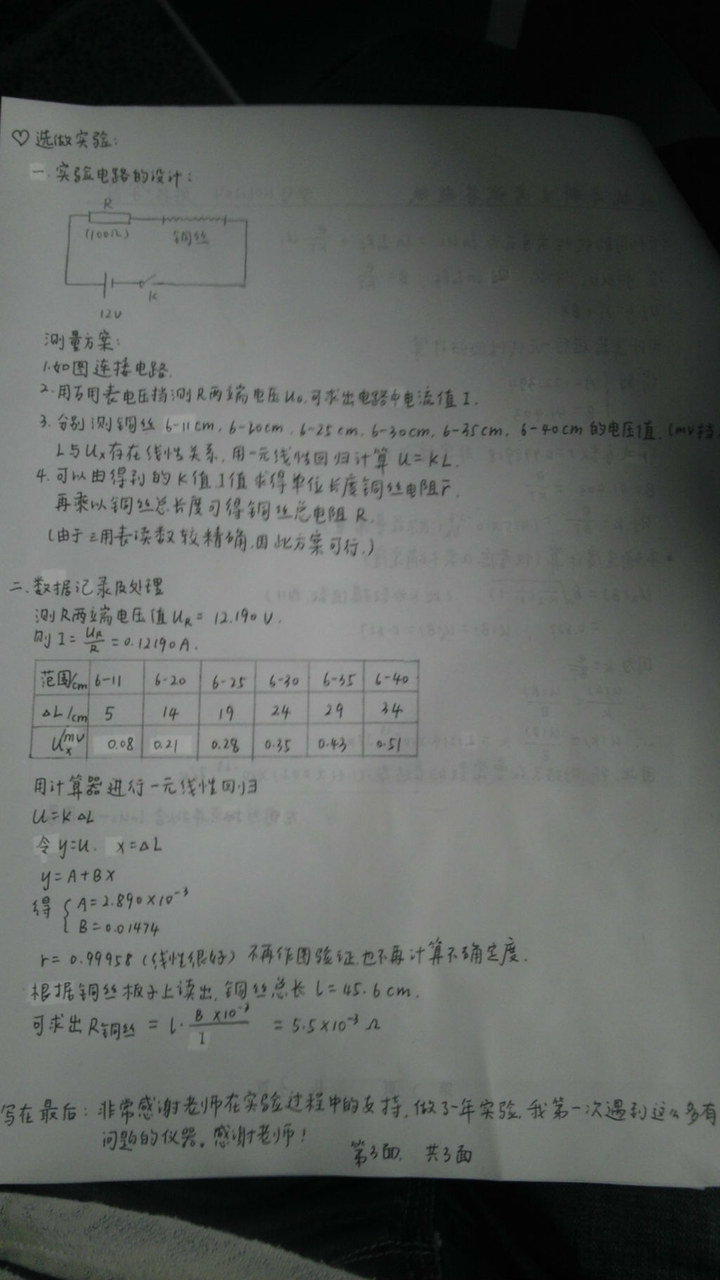 ♡选做实验:
一.实验电路的设计:
R
(100Ω) 铜丝
12V K
测量方案:
1.如图连接电路.
2.用万用表电压挡测R两端电压U₀,可求出电路中电流值I.
3.分别测铜丝 6-11cm, 6-20cm, 6-25cm, 6-30cm, 6-35cm, 6-40cm的电压值.(mV挡.
L与Uₓ存在线性关系,用一元线性回归计算U=KL.
4.可以由得到的K值、I值求得单位长度铜丝电阻r̄.
再乘以铜丝总长度可得铜丝总电阻R.
(由于三用表读数较精确,因此方案可行.)
二.数据记录及处理
测R两端电压值U_R = 12.190V.
则I = U_R/R = 0.12190A.
范围/cm 6-11 6-20 6-25 6-30 6-35 6-40
ΔL/cm 5 14 19 24 29 34
Uₓ/mV 0.08 0.21 0.28 0.35 0.43 0.51
用计算器进行一元线性回归
U=KΔL
令y=U. x=ΔL
y=A+Bx
得 { A=2.890×10⁻³
B=0.01474
r=0.99958(线性很好)不再作图验证,也不再计算不确定度.
根据铜丝板子上读出,铜丝总长l=45.6cm.
可求出R铜丝 = l·B×10⁻³/I = 5.5×10⁻³Ω
写在最后:非常感谢老师在实验过程中的支持,做了一年实验,我第一次遇到这么多有
问题的仪器。感谢老师!
第3面. 共3面